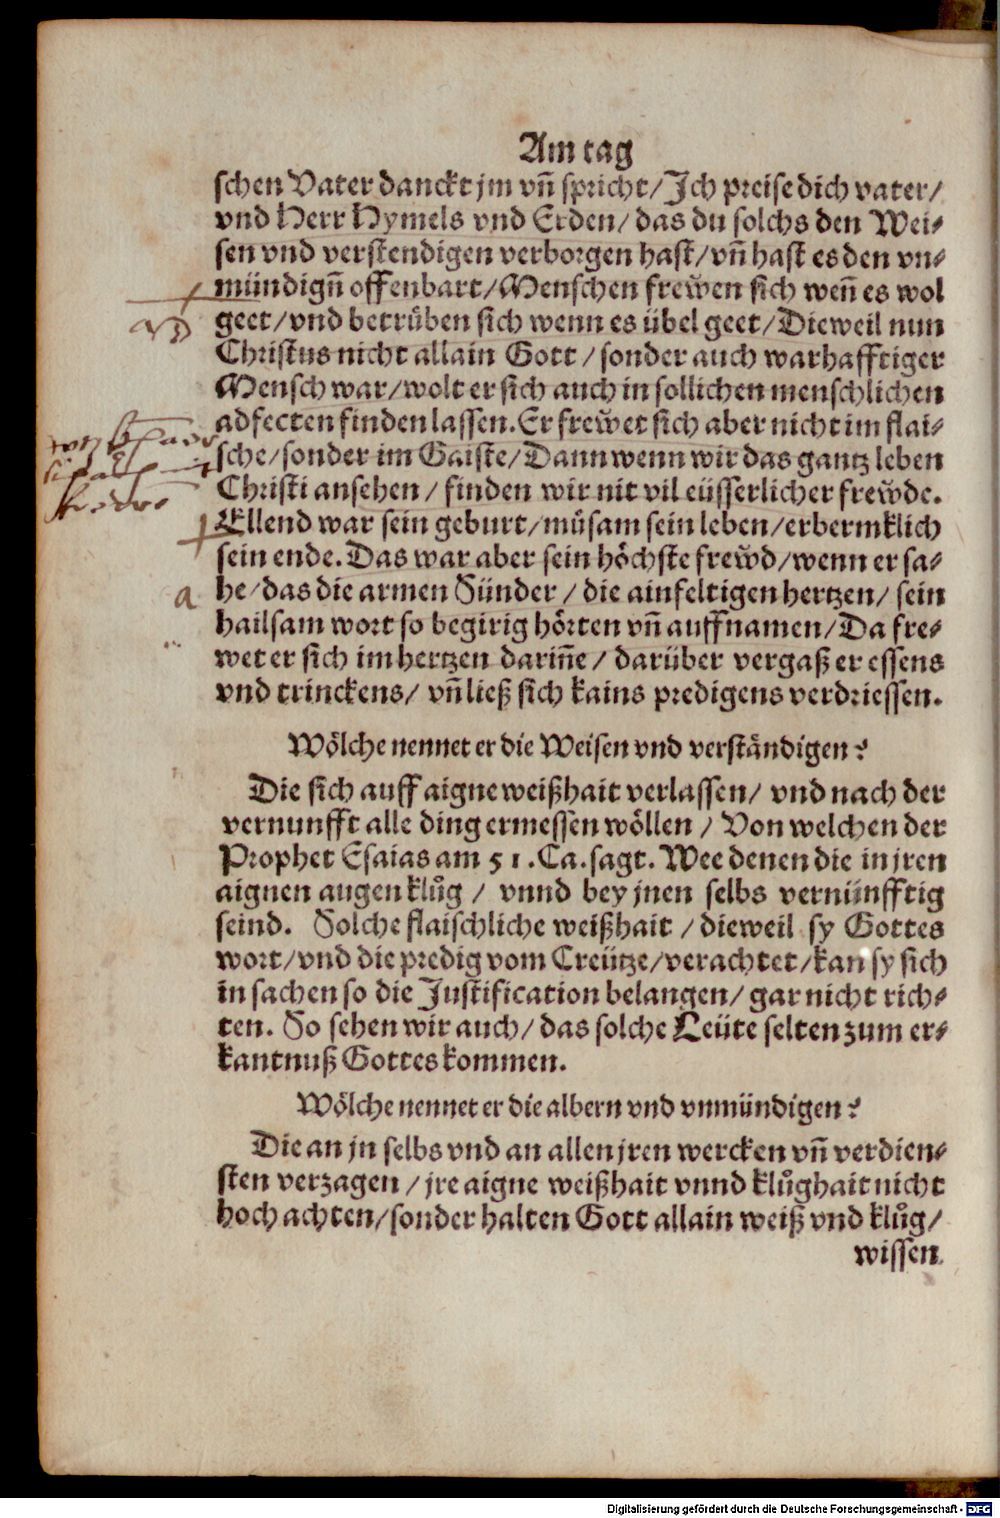 Am tag
schen Vater danckt jm vñ spricht/ Jch preise dich vater/
vnd Herr Hymels vnd Erden/ das du solchs den Wei-
sen vnd verstendigen verborgen hast/ vñ hast es den vn-
mündigñ offenbart/ Menschen frewen sich weñ es wol
geet/ vnd betrüben sich wenn es übel geet/ Dieweil nun
Christus nicht allain Gott/ sonder auch warhafftiger
Mensch war/ wolt er sich auch in sollichen menschlichen
adfecten finden lassen. Er frewet sich aber nicht im flai-
sche/ sonder im Gaiste/ Dann wenn wir das gantz leben
Christi ansehen/ finden wir nit vil eüsserlicher frewde.
Ellend war sein geburt/ müsam sein leben/ erbermklich
sein ende. Das war aber sein höchste frewd/ wenn er sa-
a
he/ das die armen Sünder/ die ainfeltigen hertzen/ sein
hailsam wort so begirig hörten vñ auffnamen/ Da fre-
wet er sich im hertzen dariñe/ darüber vergaß er essens
vnd trinckens/ vñ ließ sich kains predigens verdriessen.
Wölche nennet er die Weisen vnd verständigen?
Die sich auff aigne weißhait verlassen/ vnd nach der
vernunfft alle ding ermessen wöllen/ Von welchen der
Prophet Esaias am 51. Ca. sagt. Wee denen die in jren
aignen augen klůg/ vnnd bey jnen selbs vernünfftig
seind. Solche flaischliche weißhait/ dieweil sy Gottes
wort/ vnd die predig vom Creütze/ verachtet/ kan sy sich
in sachen so die Justification belangen/ gar nicht rich-
ten. So sehen wir auch/ das solche Leüte selten zum er-
kantnuß Gottes kommen.
Wölche nennet er die albern vnd vnmündigen?
Die an jn selbs vnd an allen jren wercken vñ verdien-
sten verzagen/ jre aigne weißhait vnnd klůghait nicht
hoch achten/ sonder halten Gott allain weiß vnd klůg/
wissen
Digitalisierung gefördert durch die Deutsche Forschungsgemeinschaft - DFG